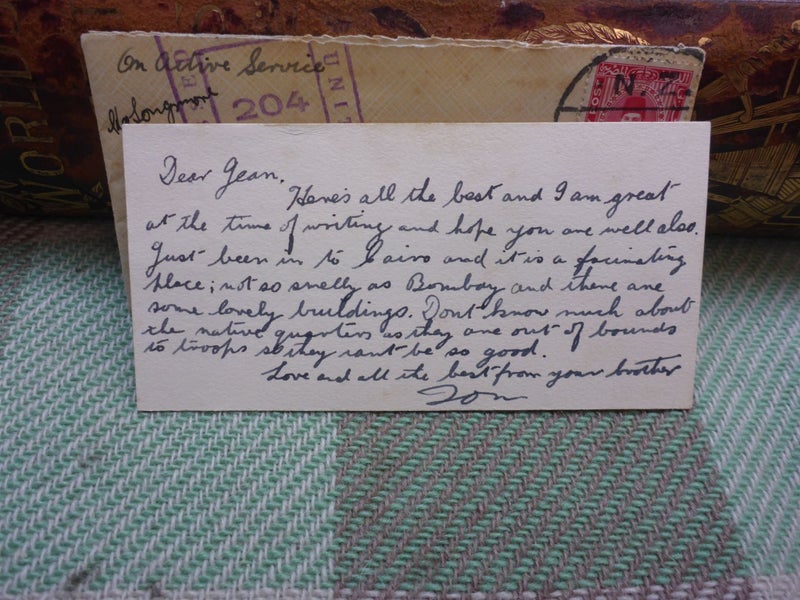 WORLD
On Active Service
UNI
204
POST
Dear Jean.
Here's all the best and I am great
at the time of writing and hope you are well also.
Just been in to Cairo and it is a facinating
place; not so smelly as Bombay and there are
some lovely buildings. Dont know much about
the native quarters as they are out of bounds
to troops so they cant be so good.
Love and all the best from your brother